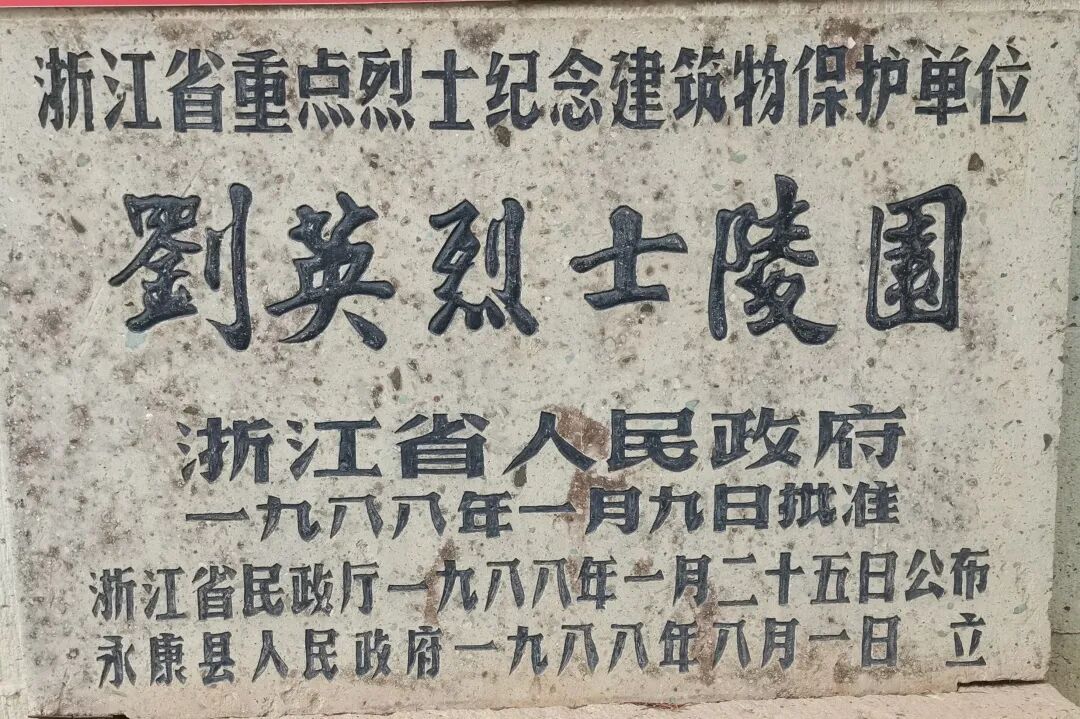 浙江省重点烈士纪念建筑物保护单位
劉英烈士陵園
浙江省人民政府
一九八八年一月九日批准
浙江省民政厅一九八八年一月二十五日公布
永康县人民政府一九八八年八月一日 立